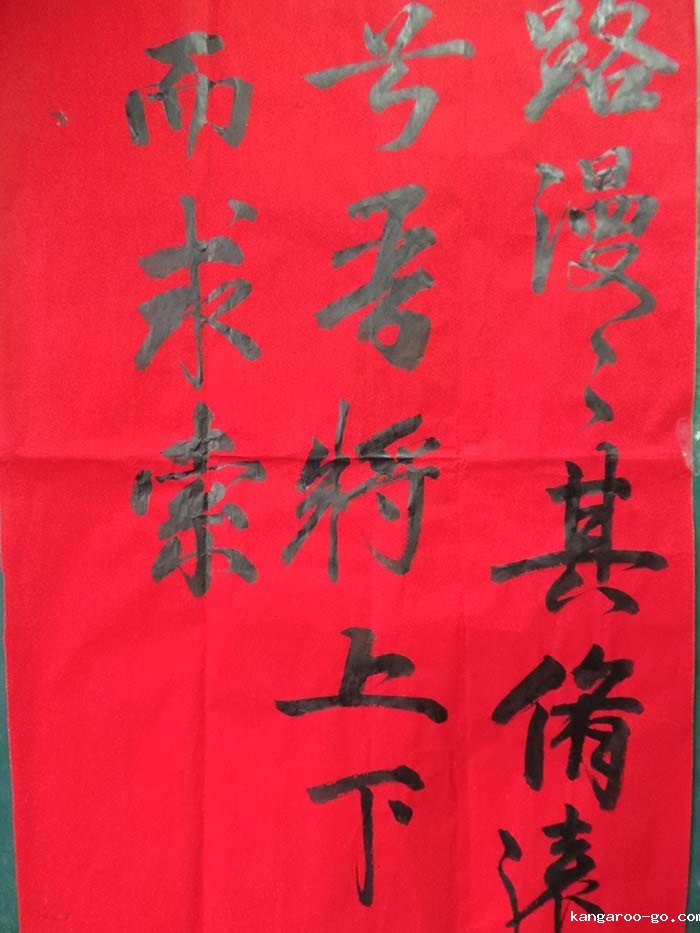 路漫々其脩遠
兮吾将上下
而求索
kangaroo-go.com